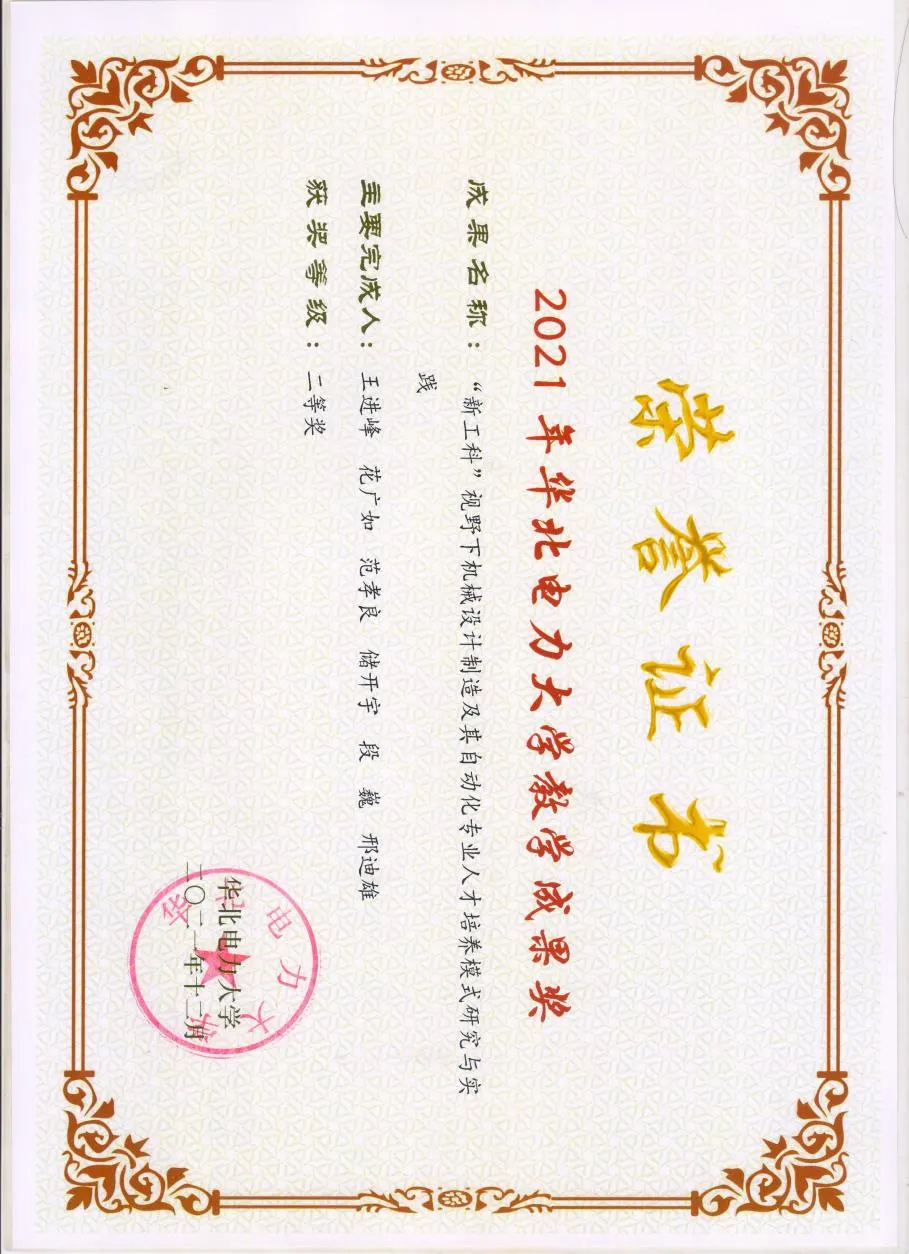 荣誉证书
2021年华北电力大学教学成果奖
成果名称：“新工科”视野下机械设计制造及其自动化专业人才培养模式研究与实
践
主要完成人：王进峰 花广如 范孝良 储开宇 段 巍 邢迪雄
获奖等级：二等奖
华北电力大学
二〇二一年十二月
华北电力大学